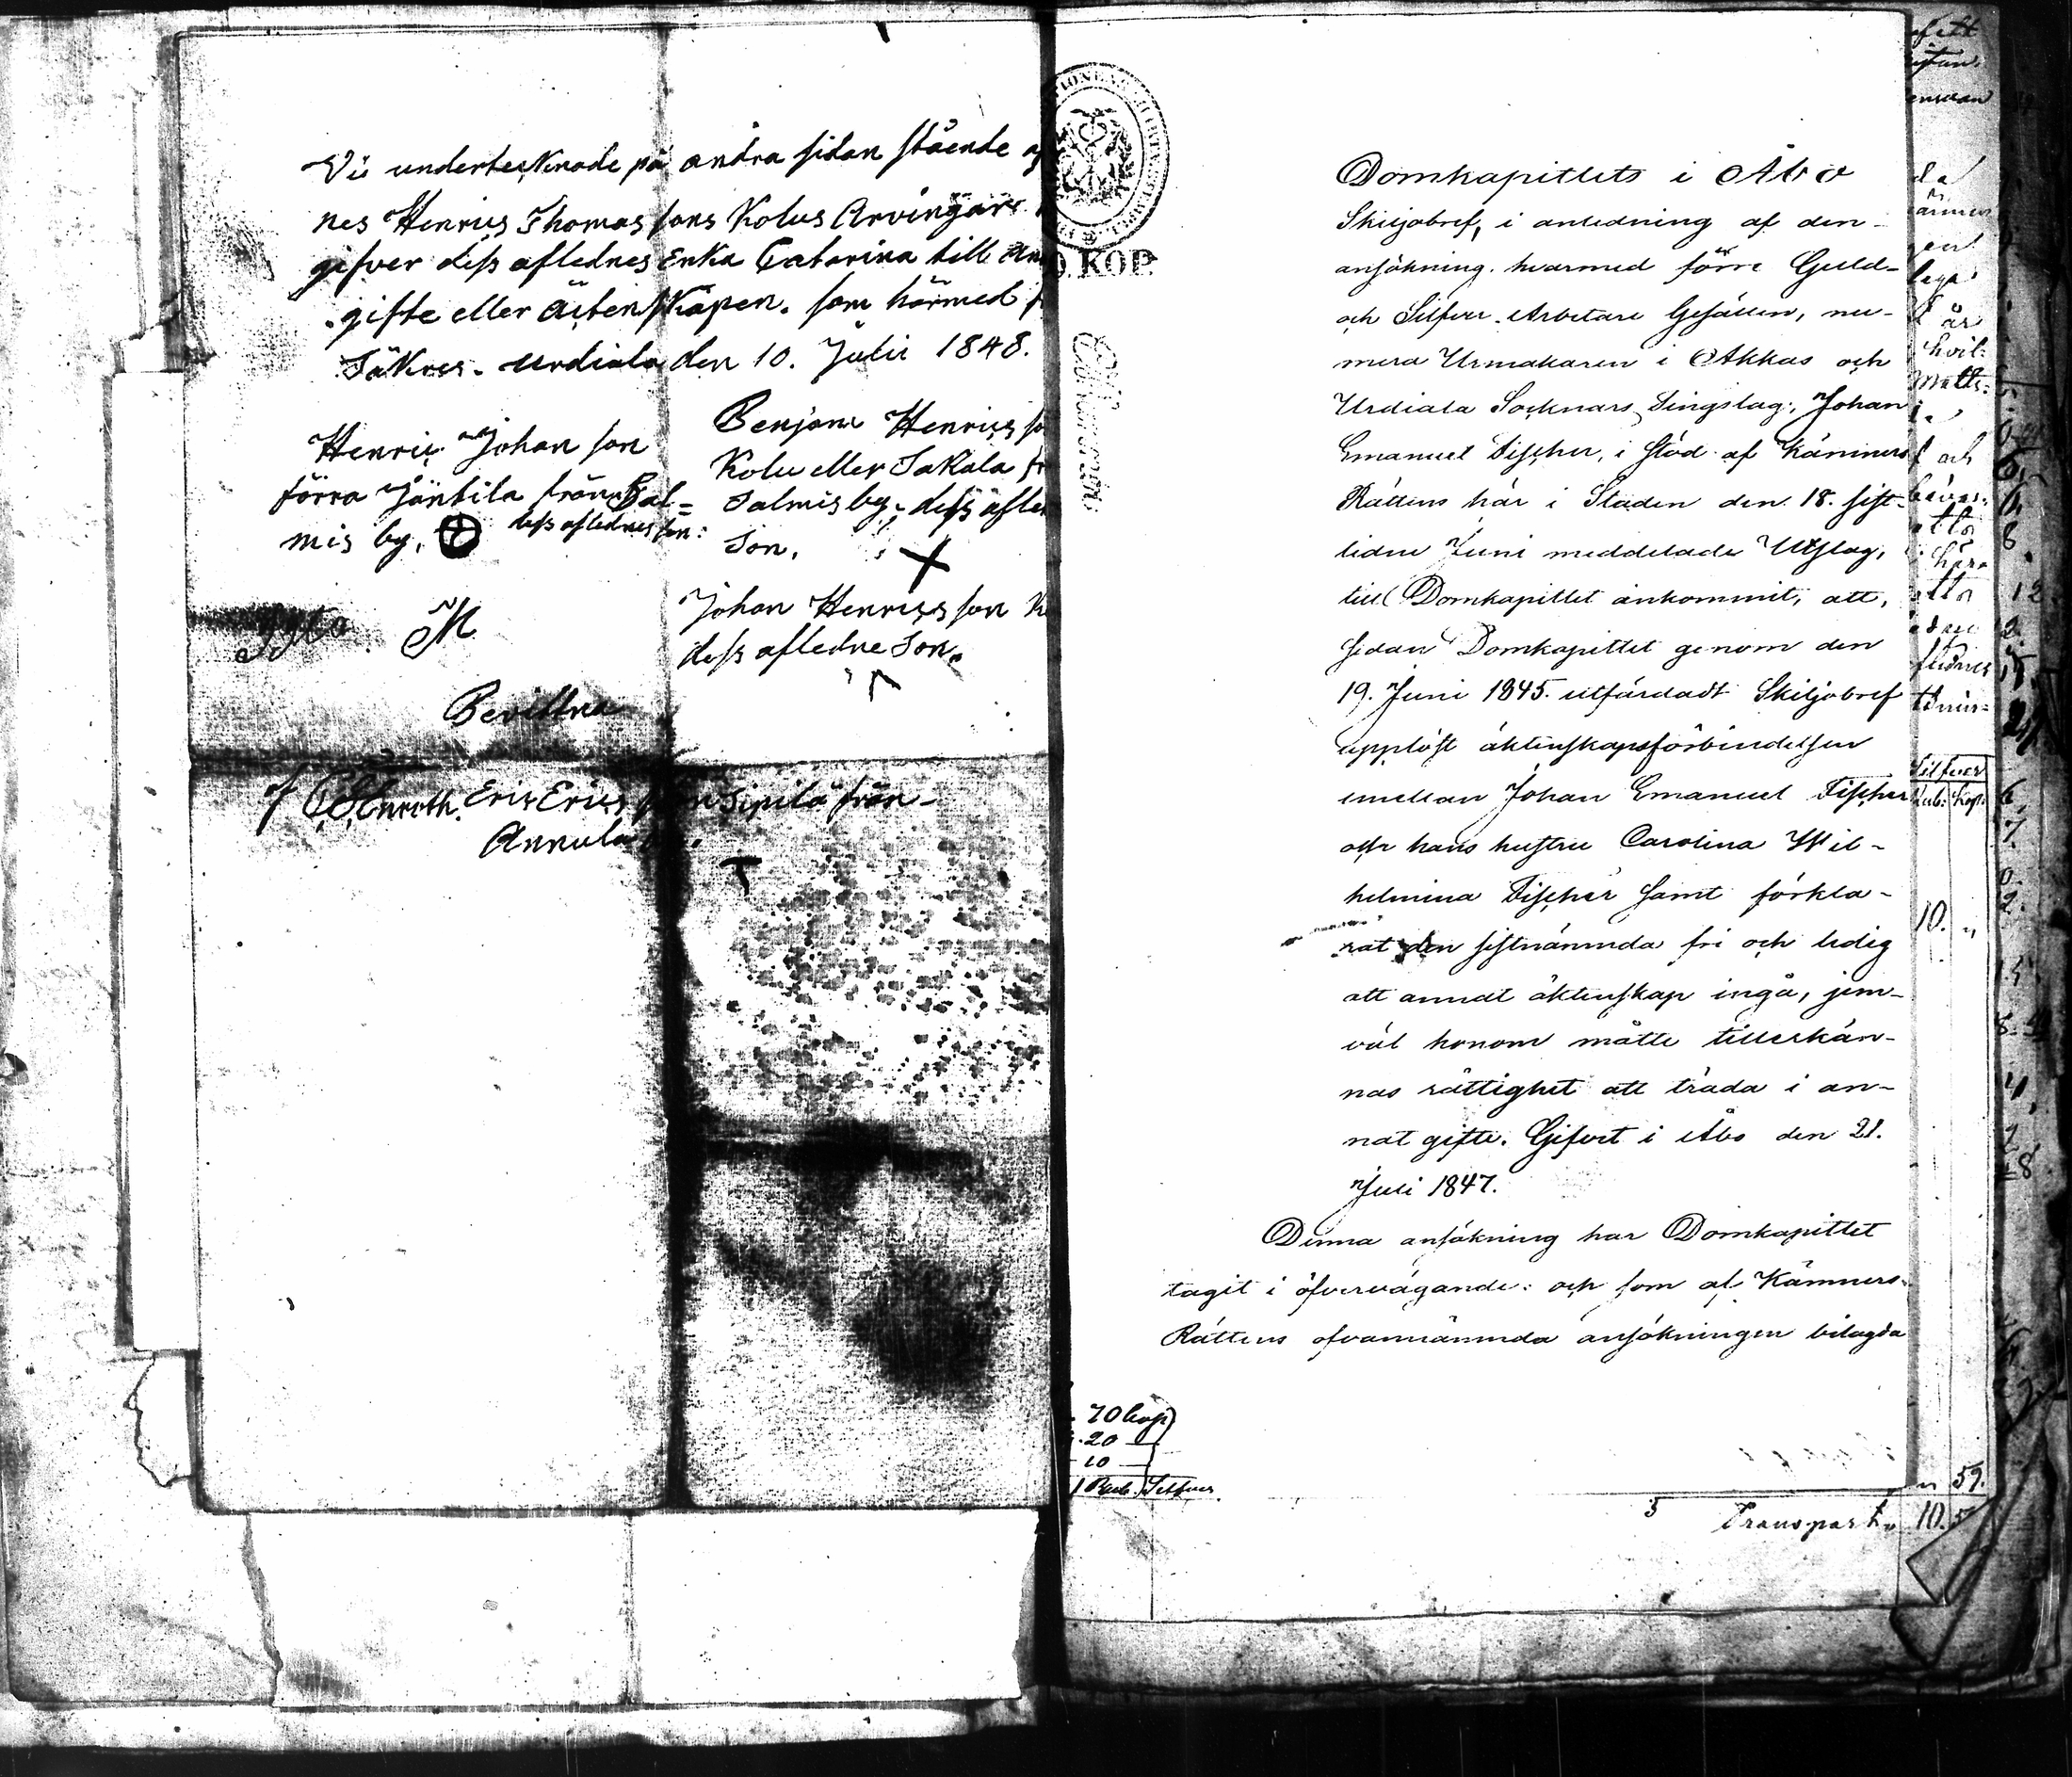 Vi underteknade på andra sidan stående af
nes Henrics Thomas sons Kolus Arvingar
gifver dess aflednes Enka Catarina till An
gifte eller Äcktenskapen. som härmed
Säkres. Urdiala den 10. Julii 1848.
Henric Johan son
förra Jäntila från Sal=
mis by. dess aflednes son:
Benjam Henrics so
Kolu eller Sakala fr
Salmis by, dess afled
Son.
Johan Henrics son K
dess afledne Son.
Bevittna
C. Elmroth. Eric Erics son Sipilä från
Annula
KOP.
Domkapitlets i Åbo
Skiljobref, i anledning af den
ansökning, hvarmed förre Guld-
och Silfver-Arbetare Gesällen, nu-
mera Urmakaren i Akkas och
Urdiala Socknars Tingslag, Johan
Emanuel Fischer, i stöd af Kämners
Rättens här i Staden den 18. sist-
lidne Juni meddelade Utslag,
till Domkapitlet inkommit, att,
sedan Domkapitlet genom den
19. Juni 1845. utfärdadt Skiljobref
upplöst äktenskapsförbindelsen
emellan Johan Emanuel Fischer
och hans hustru Carolina Wil-
helmina Fischer samt förkla-
rat den sistnämnda fri och ledig
att annat äktenskap ingå, jem-
väl honom måtte tillerkän-
nas rättighet att träda i an-
nat gifte. Gifvet i Åbo den 21.
Juli 1847.
Denna ansökning har Domkapitlet
tagit i öfvervägande: och som af Kämners-
Rättens ofvannämnda ansökningen bilagda
70 kop
20
10
1 Rub. Silfver
Silfver
Rub: Kop:
10. "
" 59.
5 Transport 10. 5